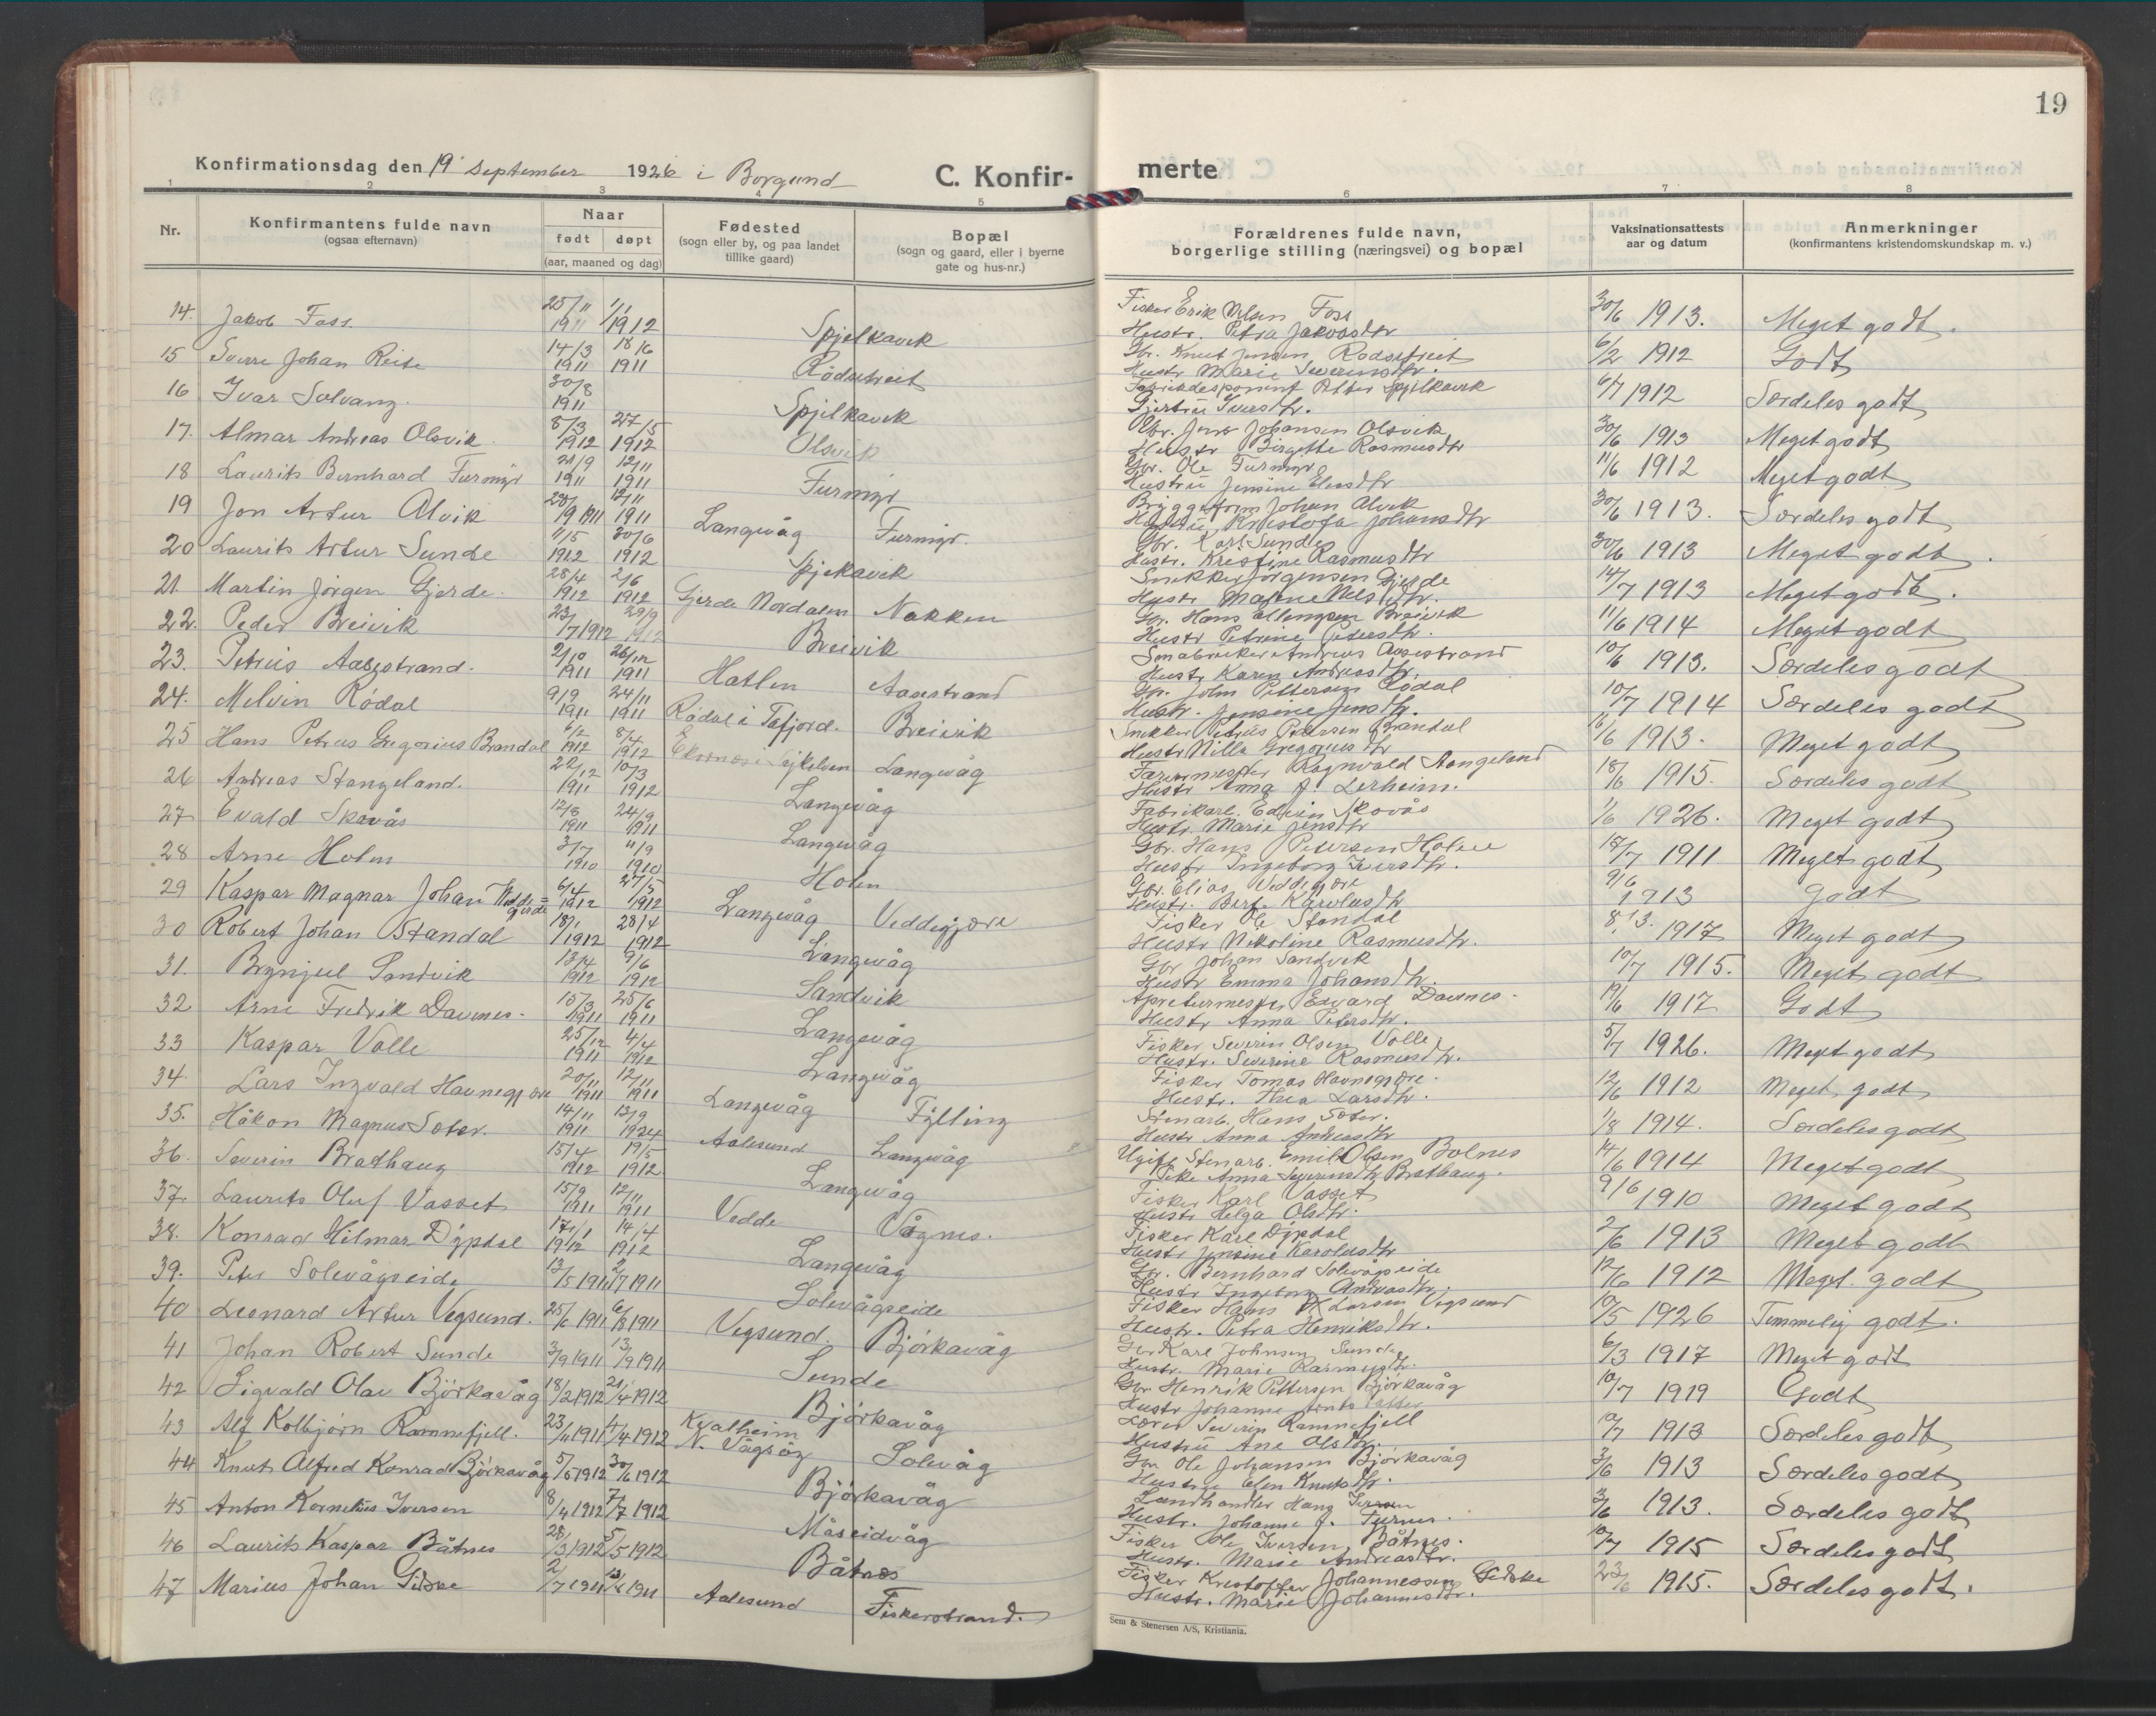 19
Konfirmationsdag den 19 september 1926 i Borgund
C. Konfir-
merte
1 2 3 4 5 6 7 8
Nr.
Konfirmantens fulde navn
(ogsaa efternavn)
Naar
født døpt
(aar, maaned og dag)
Fødested
(sogn eller by, og paa landet
tillike gaard)
Bopæl
(sogn og gaard, eller i byerne
gate og hus-nr.)
Forældrenes fulde navn,
borgerlige stilling (næringsvei) og bopæl
Vaksinationsattests
aar og datum
Anmerkninger
(konfirmantens kristendomskundskap m. v.)
14. Jakob Foss. 25/11 1911 1/1 1912 Spjelkavik Fisker Erik Foss 30/6 1913. Meget godt.
Hustr. Petra Jakobsdtr
15 Sverre Johan Reite 14/3 1911 18/6 1911 Rødsetreit Gbr. Knut Jensen Rødsetreit 6/2 1912 Godt
Hustr Marie Severinsdtr.
16 Ivar Solvang. 30/8 1911 Spjelkavik Petter Spjelkavik 6/7 1912 Særdeles godt
Gjertru Iversdtr.
17. Almar Andreas Olsvik. 8/3 1912 27/5 1912 Olsvik Gbr. Johansen Olsvik 30/6 1913 Meget godt
Hustr Birgitte Rasmusdtr
18 Laurits Bernhard Furmyr 21/9 1911 12/11 1911 Furmyr Gbr. Ole Furmyr 11/6 1912 Meget godt
Hustru Jensine Eliasdtr
19 Jon Artur Alvik 1911 12/11 1911 Langevåg Furmyr. Johan Alvik 30/6 1913. Særdeles godt
Kristofa Johansdtr
20 Laurits Artur Sunde 11/5 1912 30/6 1912 Spjelkavik Gbr. Karl Sunde 30/6 1913 Meget godt.
Hustr. Kristine Rasmusdtr
21. Martin Jørgen Gjerde. 28/4 1912 2/6 1912 Gjerde Nordalen Nakken Snikker Jørgensen Gjerde 14/7 1913 Meget godt.
Hustr Malene Nilsdtr.
22. Peder Breivik 23/7 1912 29/9 1912 Breivik Gbr. Hans Ellingsen Breivik 11/6 1914 Meget godt
Hustr Petrine Petersdtr.
23. Petrus Aasestrand. 2/10 1911 26/12 1911 Hatlen Aasestrand Andreas Aasestrand 10/6 1913. Særdeles godt
Hustr Karen Andreasdtr.
24. Melvin Rødal 9/9 1911 24/11 1911 Rødal i Tafjord. Breivik Gbr. John Pettersen Rødal 10/7 1914 Særdeles godt
Hustr. Jensine Jensdtr.
25 Hans Petrus Gregorius Brandal 6/2 1912 8/4 1912 Langevåg Snekker Petrus Petersen Brandal 6/6 1913. Meget godt
Hustr Nilla Gregoriusdtr
26 Andreas Stangeland. 22/12 1911 10/3 1912 Langevåg Ragnvald Stangeland 18/6 1915. Særdeles godt
Hustr Anna J. Lerheim.
27 Evald Skovås 12/8 1911 24/9 1911 Langevåg Fabrikarb. Edvin Skovås 1/6 1926. Meget godt
Hustr. Marie Jensdtr
28 Arne Holen 3/7 1910 11/9 1910 Holen Gbr. Hans Petersen Holen 18/7 1911 Meget godt
Hustr Ingeborg Iversdtr.
29 Kaspar Magnar Johan Vedde=gjerde 6/4 1912 27/5 1912 Langevåg Veddegjære Gbr. Elias Veddegjære 9/6 1913 Godt
Hustr. Berte Karolusdtr
30 Robert Johan Standal 18/1 1912 28/4 1912 Langevåg Fisker Ole Standal 8/3. 1917 Meget godt
Hustr Nikoline Rasmusdtr.
31. Brynjul Sandvik 13/4 1912 9/6 1912 Sandvik Gbr Johan Sandvik 10/7 1915. Meget godt
Hustr Emma Johansdtr.
32 Arne Fredrik Davnes. 15/3 1911 25/6 1911 Langevåg Apreturmester Edvard Davnes. 19/6 1917 Godt
Hustr Anna Petersdtr.
33 Kaspar Volle 25/12 1911 4/4 1912 Langevåg Fisker Severin Olsen Volle 5/7 1926. Meget godt
Hustr. Severine Rasmusdtr.
34. Lars Ingvald Havnegjære 20/11 1911 12/11 1911 Langevåg Fylling Fisker Tomas Havnegjære. 12/6 1912 Meget godt
Hustr. Thea Larsdtr.
35. Håkon Magnus Soter. 14/11 1911 13/9 1924 Aalesund Langevåg Stenarb. Hans Soter. 1/8 1914. Særdeles godt
Hustr Anna Andreasdtr
36. Severin Brathaug 15/4 1912 19/5 1912 Langevåg Ugift Stenarb. Emil Olsen Bolnes 14/6 1914 Meget godt
Pike Anna Severinsdtr Brathaug.
37. Laurits Oluf Vasset 15/9 1911 12/11 1911 Vedde Vågnes. Fisker Karl Vasset 9/6 1910 Meget godt
Hustr Helga Olsdtr.
38. Konrad Hilmar Dypdal 17/1 1912 14/4 1912 Langevåg Fisker Karl Dypdal 2/6 1913 Meget godt
Hustr Jensine Karolusdtr
39. Peter Solevågseide 13/5 1911 2/7 1911 Solevågseide Gbr. Bernhard Solevågseide 12/6 1912 Meget godt
Hustr Ingeborg Andreasdtr.
40 Leonard Artur Vegsund. 25/6 1911 6/8 1911 Vegsund. Bjørkavåg Fisker Hans Larsen Vegsund 10/5 1926 Temmelig godt.
Hustr. Petra Henriksdtr.
41 Johan Robert Sunde 3/9 1911 13/9 1911 Sunde Gbr Karl Johnsen Sunde 6/3 1917 Meget godt
Hustr. Marie Rasmusdtr.
42 Sigvald Olav Bjørkavåg 18/2 1912 21/4 1912 Bjørkavåg Gbr Henrik Pettersen Bjørkavåg 10/7 1919 Godt
Hustr Johanne
43 Alf Kolbjørn Ramnefjell. 23/11 1911 4/4 1912 Kvalheim N. Vågsøy Solevåg Lærer Severin Ramnefjell 12/7 1913 Særdeles godt
Hustru Ane Olsdtr.
44 Knut Alfred Konrad Bjørkavåg 5/5 1912 30/6 1912 Bjørkavåg Gbr Ole Johansen Bjørkavåg 3/6 1913 Særdeles godt
Hustru Elen Knutsdtr.
45 Anton Kornelius Iversen 8/4 1912 7/7 1912 Måseidvåg Landhandler Hans Iversen 3/6 1913. Særdeles godt
Hustr. Johanne J. Furnes.
46 Laurits Kaspar Båtnes 28/3 1912 5/5 1912 Båtnes Fisker Ole Iversen Båtnes. 10/7 1915 Særdeles godt
Hustr. Marie Andreasdtr.
47 Marius Johan Giske 2/7 1911 1911 Aalesund Fiskerstrand. Fisker Kristoffer Johannessen Giske 23/6 1915. Særdeles godt.
Hustr. Marie Johannesdtr.
Sem & Stenersen A/S, Kristiania.